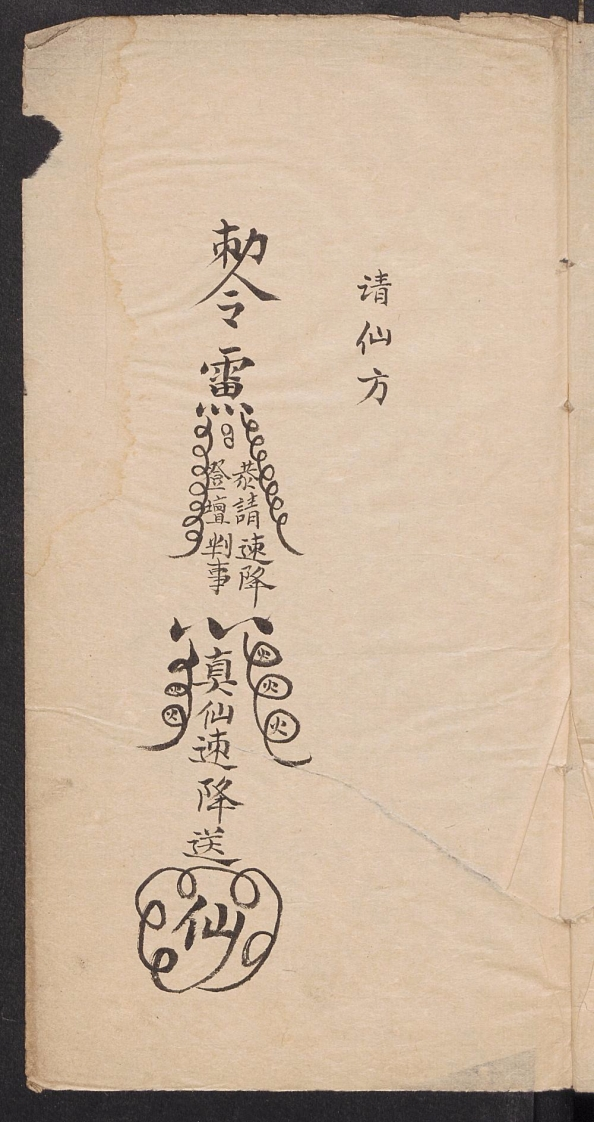 请仙方
勅令
雷
恭請速降
登壇判事
火火火
火火
真仙速降送
仙